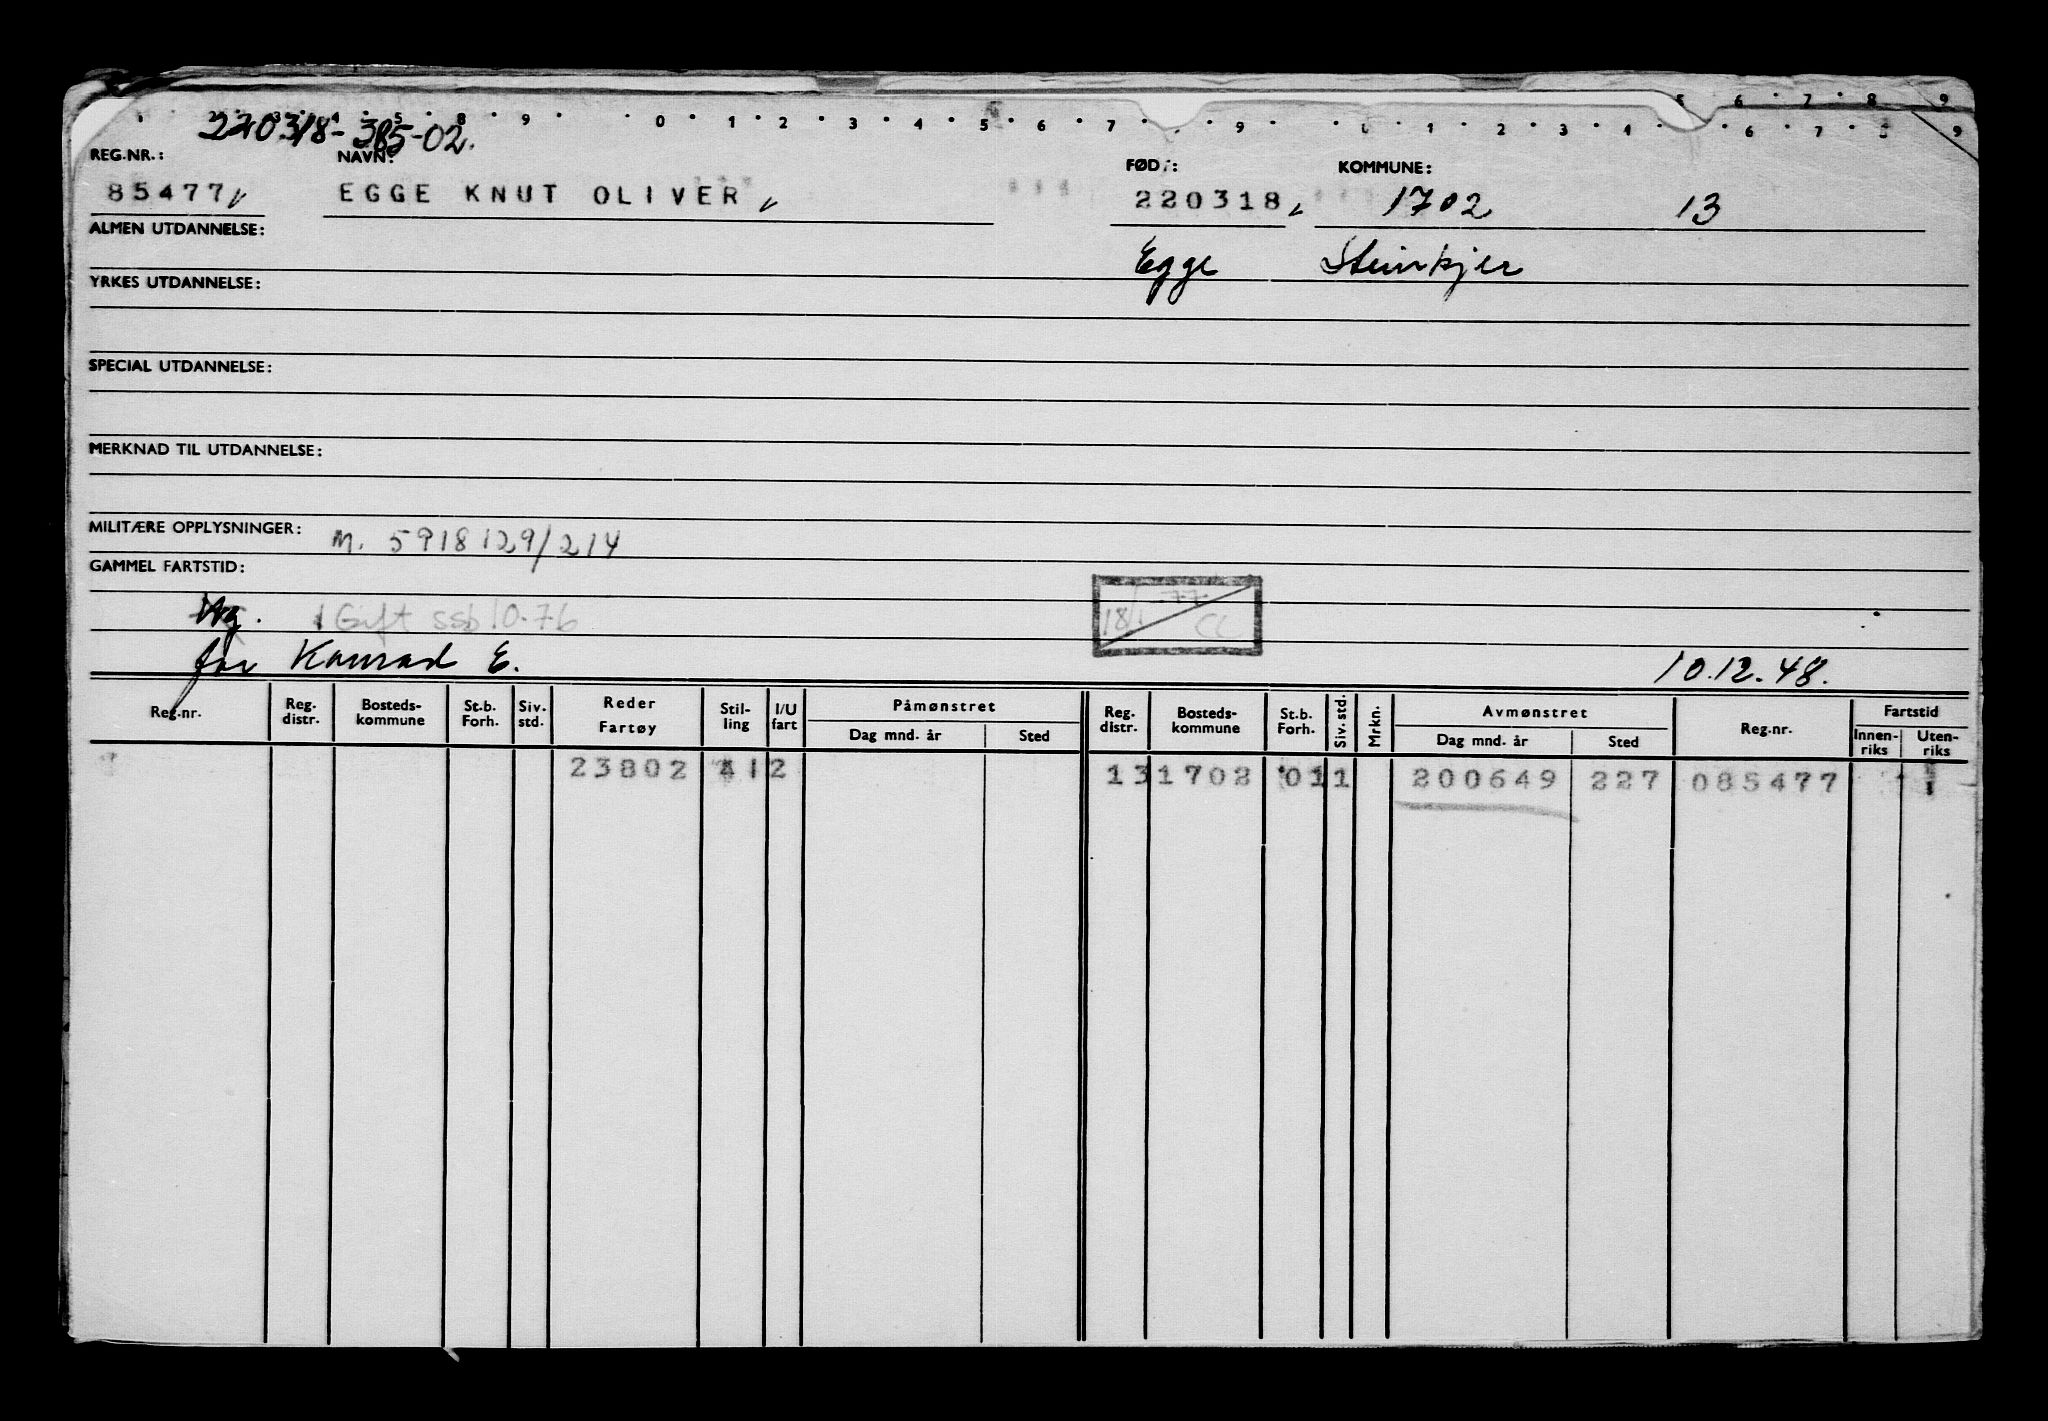 220318-385-02.
REG.NR.: NAVN: FØDT: KOMMUNE:
85477 EGGE KNUT OLIVER 220318 1702 13
ALMEN UTDANNELSE: Egge Steinkjer
YRKES UTDANNELSE:
SPECIAL UTDANNELSE:
MERKNAD TIL UTDANNELSE:
MILITÆRE OPPLYSNINGER: M. 5918129/214
GAMMEL FARTSTID:
Gift ssb 10-76 18/1 -77 CC
far Konrad E. 10.12.48.
Reg.nr. Reg. distr. Bosteds-kommune St.b. Forh. Siv. std. Reder Fartøy Stil-ling I/U fart Påmønstret Dag mnd. år Sted Reg. distr. Bosteds-kommune St.b. Forh. Siv. std. Mrkn. Avmønstret Dag mnd. år Sted Reg.nr. Fartstid Innen-riks Uten-riks
23802 412 131702 011 200649 227 085477 1